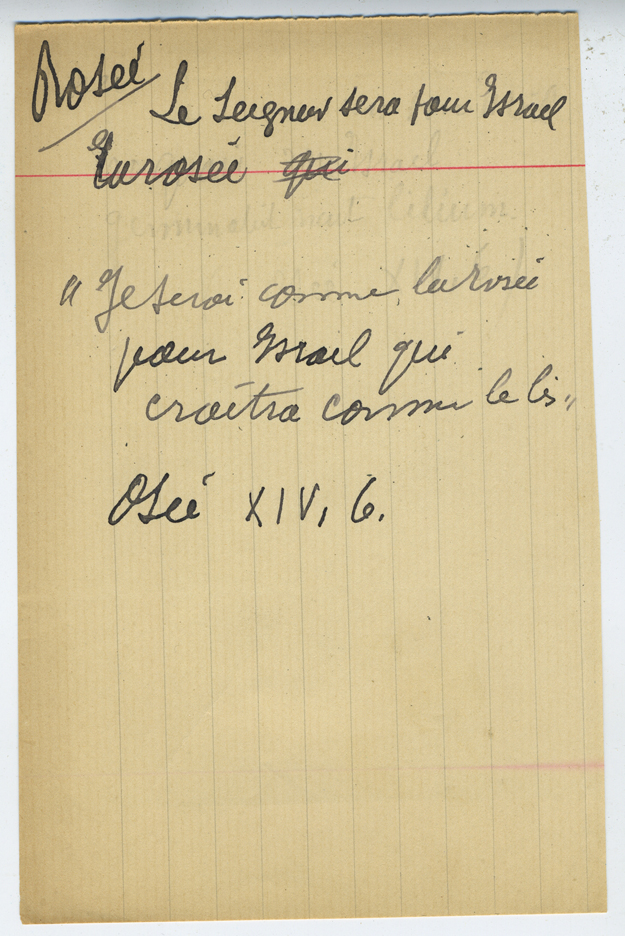 Rosée
Le Seigneur sera pour Israel
la rosée qui
"Je serai comme la rosée
pour Israel qui
croîtra comme le lis"
Osée XIV, 6.